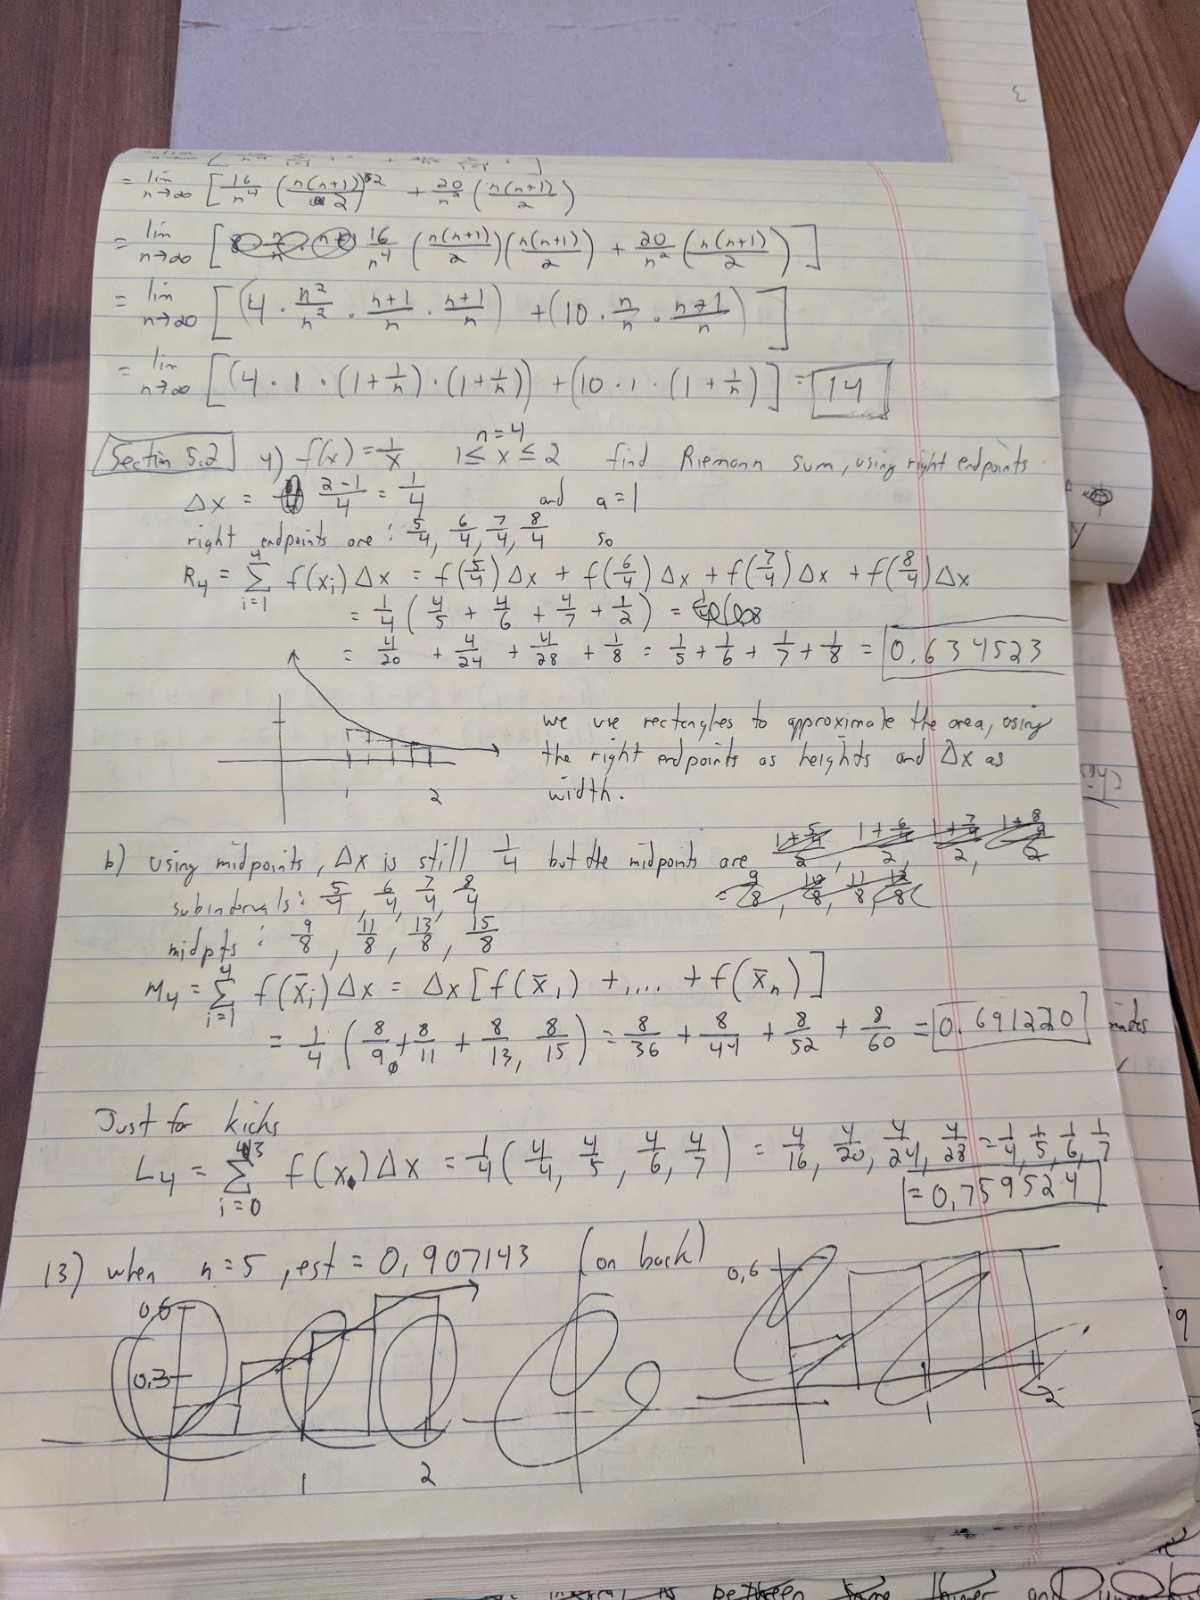 = lim n→∞ [ 16/n⁴ (n(n+1)/2)² + 20/n² (n(n+1)/2)
= lim n→∞ [ 16/n⁴ (n(n+1)/2)(n(n+1)/2) + 20/n² (n(n+1)/2) ]
= lim n→∞ [ (4 · n²/n² · n+1/n · n+1/n) + (10 · n/n · n+1/n) ]
= lim n→∞ [ (4 · 1 · (1 + 1/n) · (1 + 1/n)) + (10 · 1 · (1 + 1/n) ] = 14
n = 4
Section 5.2 4) f(x) = 1/x 1 ≤ x ≤ 2 find Riemann sum, using right endpoints
Δx = 2-1/4 = 1/4 and a = 1
right endpoints are : 5/4, 6/4, 7/4, 8/4 so
R₄ = 4 Σ i=1 f(xᵢ) Δx = f(5/4) Δx + f(6/4) Δx + f(7/4) Δx + f(8/4) Δx
= 1/4 ( 4/5 + 4/6 + 4/7 + 1/2 ) =
= 4/20 + 4/24 + 4/28 + 1/8 = 1/5 + 1/6 + 1/7 + 1/8 = 0.634523
we use rectangles to approximate the area, using
the right endpoints as heights and Δx as
width.
1 2
b) Using midpoints, Δx is still 1/4 but the midpoints are 1+5/4/2, 1+6/4/2, 1+7/4/2, 1+8/4/2
= 9/8, 10/8, 11/8, 12/8
subintervals: 5/4, 6/4, 7/4, 8/4
midpts : 9/8, 11/8, 13/8, 15/8
M₄ = 4 Σ i=1 f(x̄ᵢ) Δx = Δx [ f(x̄₁) + .... + f(x̄ₙ) ]
= 1/4 ( 8/9 + 8/11 + 8/13, 8/15 ) = 8/36 + 8/44 + 8/52 + 8/60 = 0.691220
Just for kicks
L₄ = 3 Σ i=0 f(x) Δx = 1/4 ( 4/4, 4/5, 4/6, 4/7 ) = 4/16, 4/20, 4/24, 4/28 = 1/4, 1/5, 1/6, 1/7
= 0.759524
13) when n = 5, est = 0.907143 (on back)
0.6 0.6
0.3
1 2 1 2